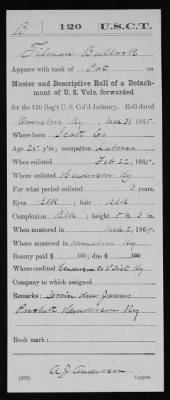 B | 120 | U.S.C.T.
Tilman Bullock
Appears with rank of Pvt. on
Muster and Descriptive Roll of a Detach-
ment of U. S. Vols. forwarded
for the 120 Reg't U. S. Col'd Infantry. Roll dated
Owensboro Ky, Mch 31, 1865.
Where born Scott Co
Age 25 y'rs; occupation Laborer
When enlisted Feb 22, 1865.
Where enlisted Henderson Ky
For what period enlisted 3 years.
Eyes Blk ; hair Blk
Complexion Blk ; height 5 ft. 3 in.
When mustered in Mch 2, 1865.
Where mustered in Owensboro Ky
Bounty paid $ 100; due $ 100
Where credited Henderson Co 2 Dist Ky
Company to which assigned
Remarks: James
Henderson Ky
Book mark:
A. J. Anderson
(339) Copyist.